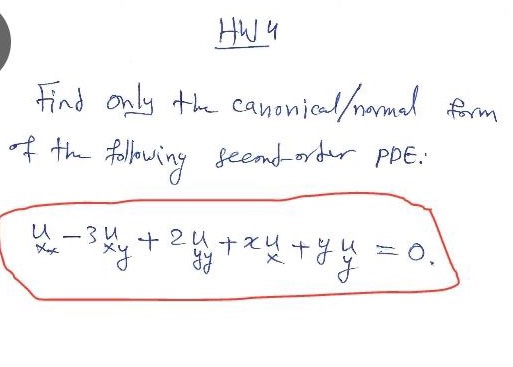 HW4
Find only the canonical/normal form
of the following second-order PDE:
u_xx - 3u_xy + 2u_yy + xu_x + yu_y = 0.